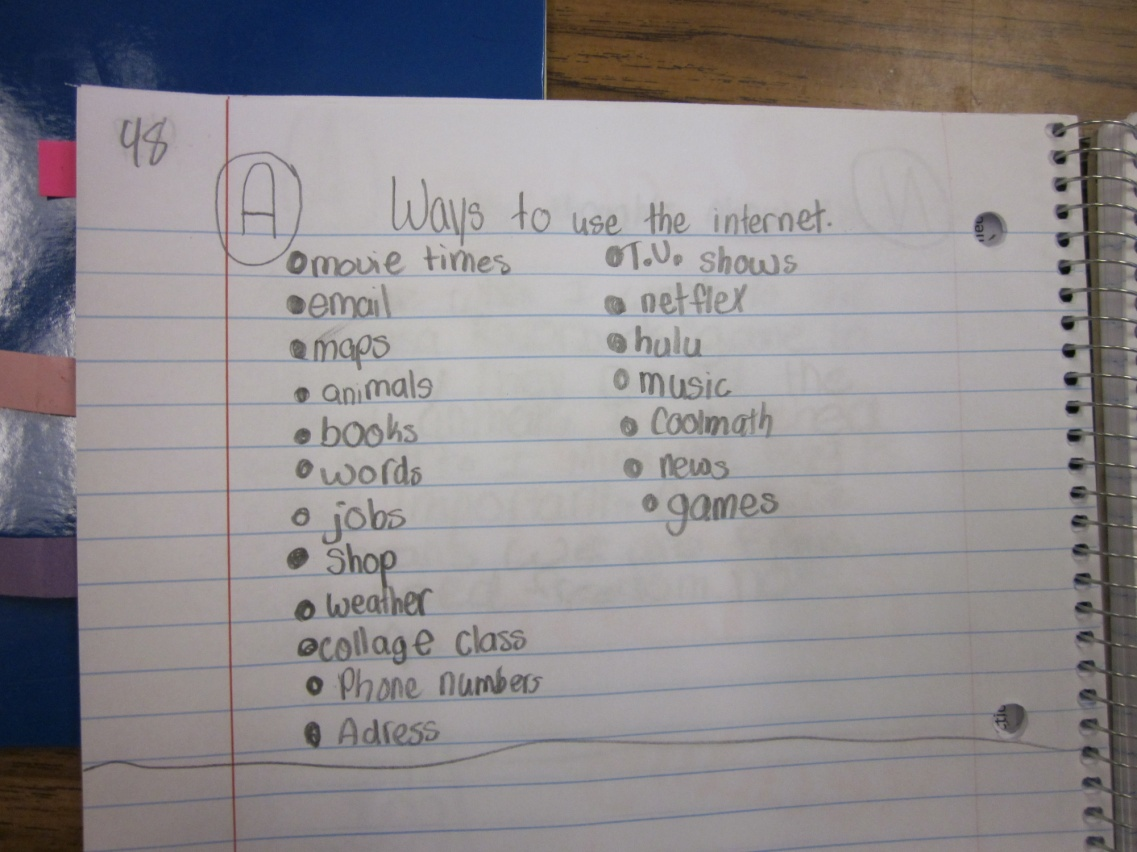 48
A
Ways to use the internet.
• movie times
• email
• maps
• animals
• books
• words
• jobs
• shop
• weather
• collage class
• Phone numbers
• Adress
• T.V. shows
• netflex
• hulu
• music
• Coolmath
• news
• games